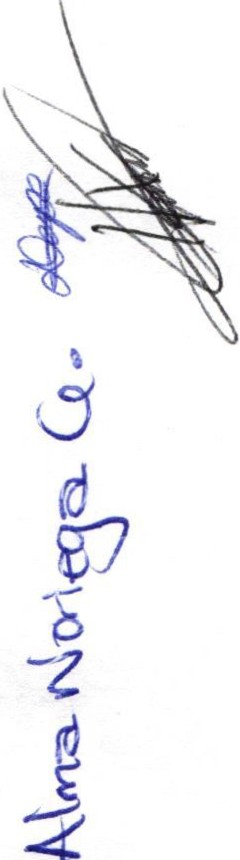 Alma Noriega C.